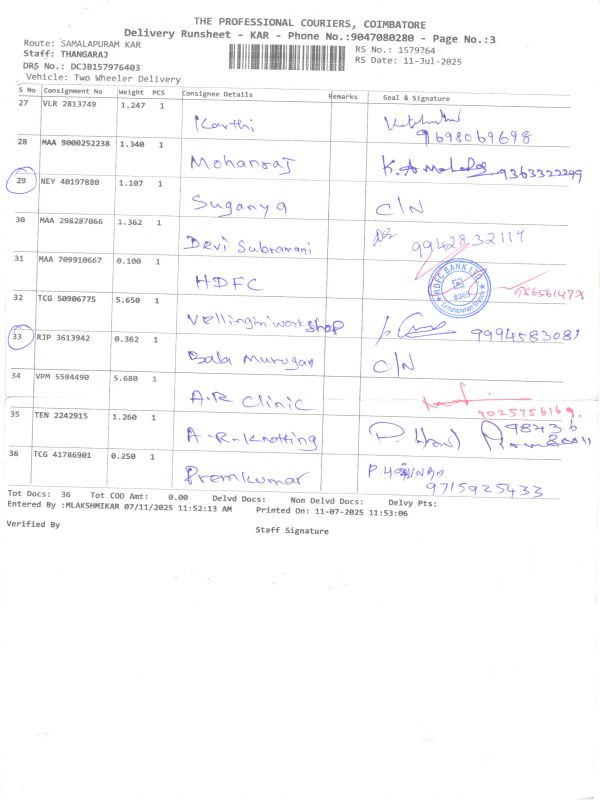 THE PROFESSIONAL COURIERS, COIMBATORE
Delivery Runsheet - KAR - Phone No.:9047080280 - Page No.:3
Route: SAMALAPURAM KAR
RS No.: 1579764
Staff: THANGARAJ
RS Date: 11-Jul-2025
DRS No.: DCJB157976403
Vehicle: Two Wheeler Delivery
S No Consignment No Weight PCS Consignee Details Remarks Seal & Signature
27 VLR 2813749 1.247 1
Karthi
9698069698
28 MAA 9000252238 1.340 1
Mohanraj 9363322299
29 NEY 40197880 1.107 1
Suganya C/N
30 MAA 298287066 1.362 1
Devi Subramani 9942832119
31 MAA 709910667 0.100 1
HDFC
HDFC BANK LTD
8369
32 TCG 50906775 5.650 1
Vellingiri workshop 9994583081
33 RJP 3613942 0.362 1
Bala Murugan C/N
34 VPM 5594490 5.680 1
A.R Clinic
9025756169.
35 TEN 2242915 1.260 1
A-R-Knotting
36 TCG 41786901 0.250 1
Premkumar
9715925433
Tot Docs: 36 Tot COD Amt: 0.00 Delvd Docs: Non Delvd Docs: Delvy Pts:
Entered By :MLAKSHMIKAR 07/11/2025 11:52:13 AM Printed On: 11-07-2025 11:53:06
Verified By
Staff Signature